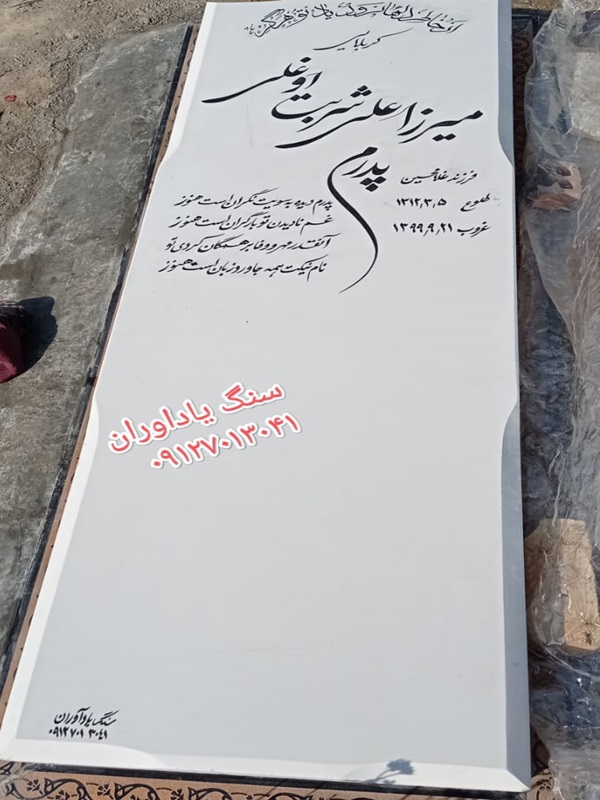 کربلایی
میرزا علی شربت اوغلی
فرزند غلامحسین
طلوع ۱۳۱۲,۳,۵
غروب ۱۳۹۹,۹,۲۱
پدرم
پدرم دیده به سویت نگران است هنوز
غم نادیدن تو بار گران است هنوز
آنقدر مهر و وفا بر همگان کردی تو
نام نیکت همه جا ورد زبان است هنوز
سنگ یاداوران
۰۹۱۲۷۰۱۳۰۴۱
سنگ یادآوران
۰۹۱۲۷۰۱۳۰۴۱